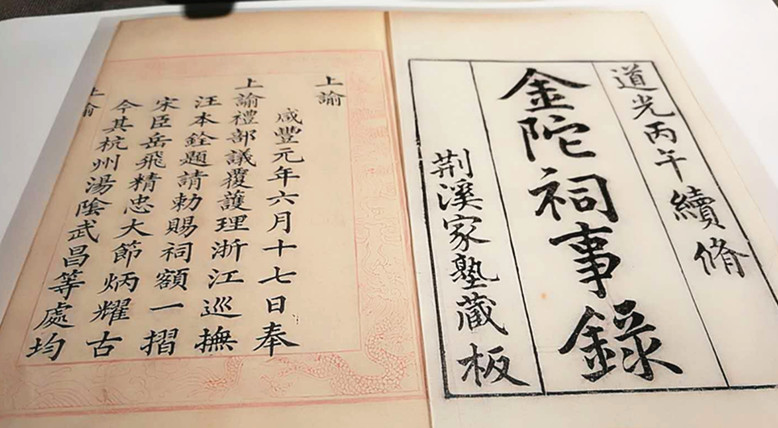 道光丙午續脩
金陀祠事錄
荆溪家塾藏板
上諭
咸豐元年六月十七日奉
上諭禮部議覆護理浙江巡撫
汪本銓題請勅賜祠額一摺
宋臣岳飛精忠大節炳耀古
今其杭州湯陰武昌等處均
上諭